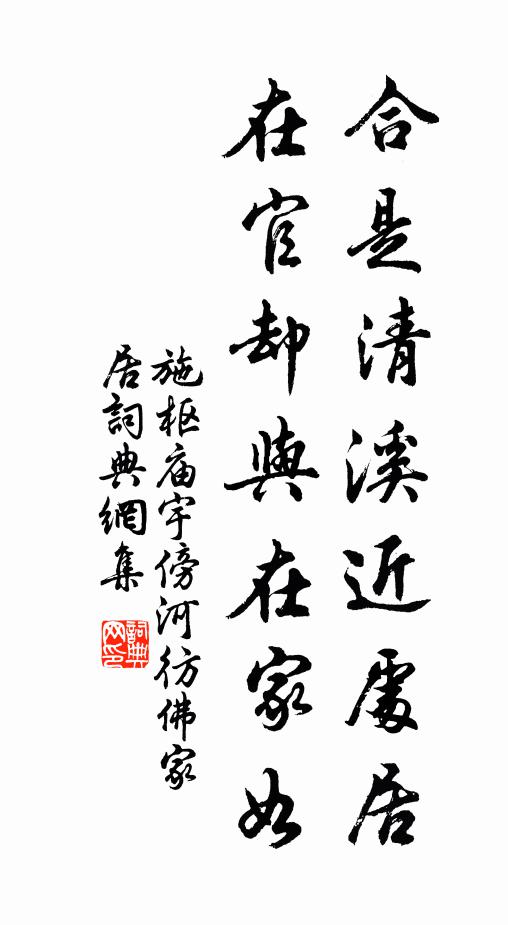 合是清溪近處居
在官却與在家如
施枢庙宇傍河彷佛家
居詞典網集
詞典
网印